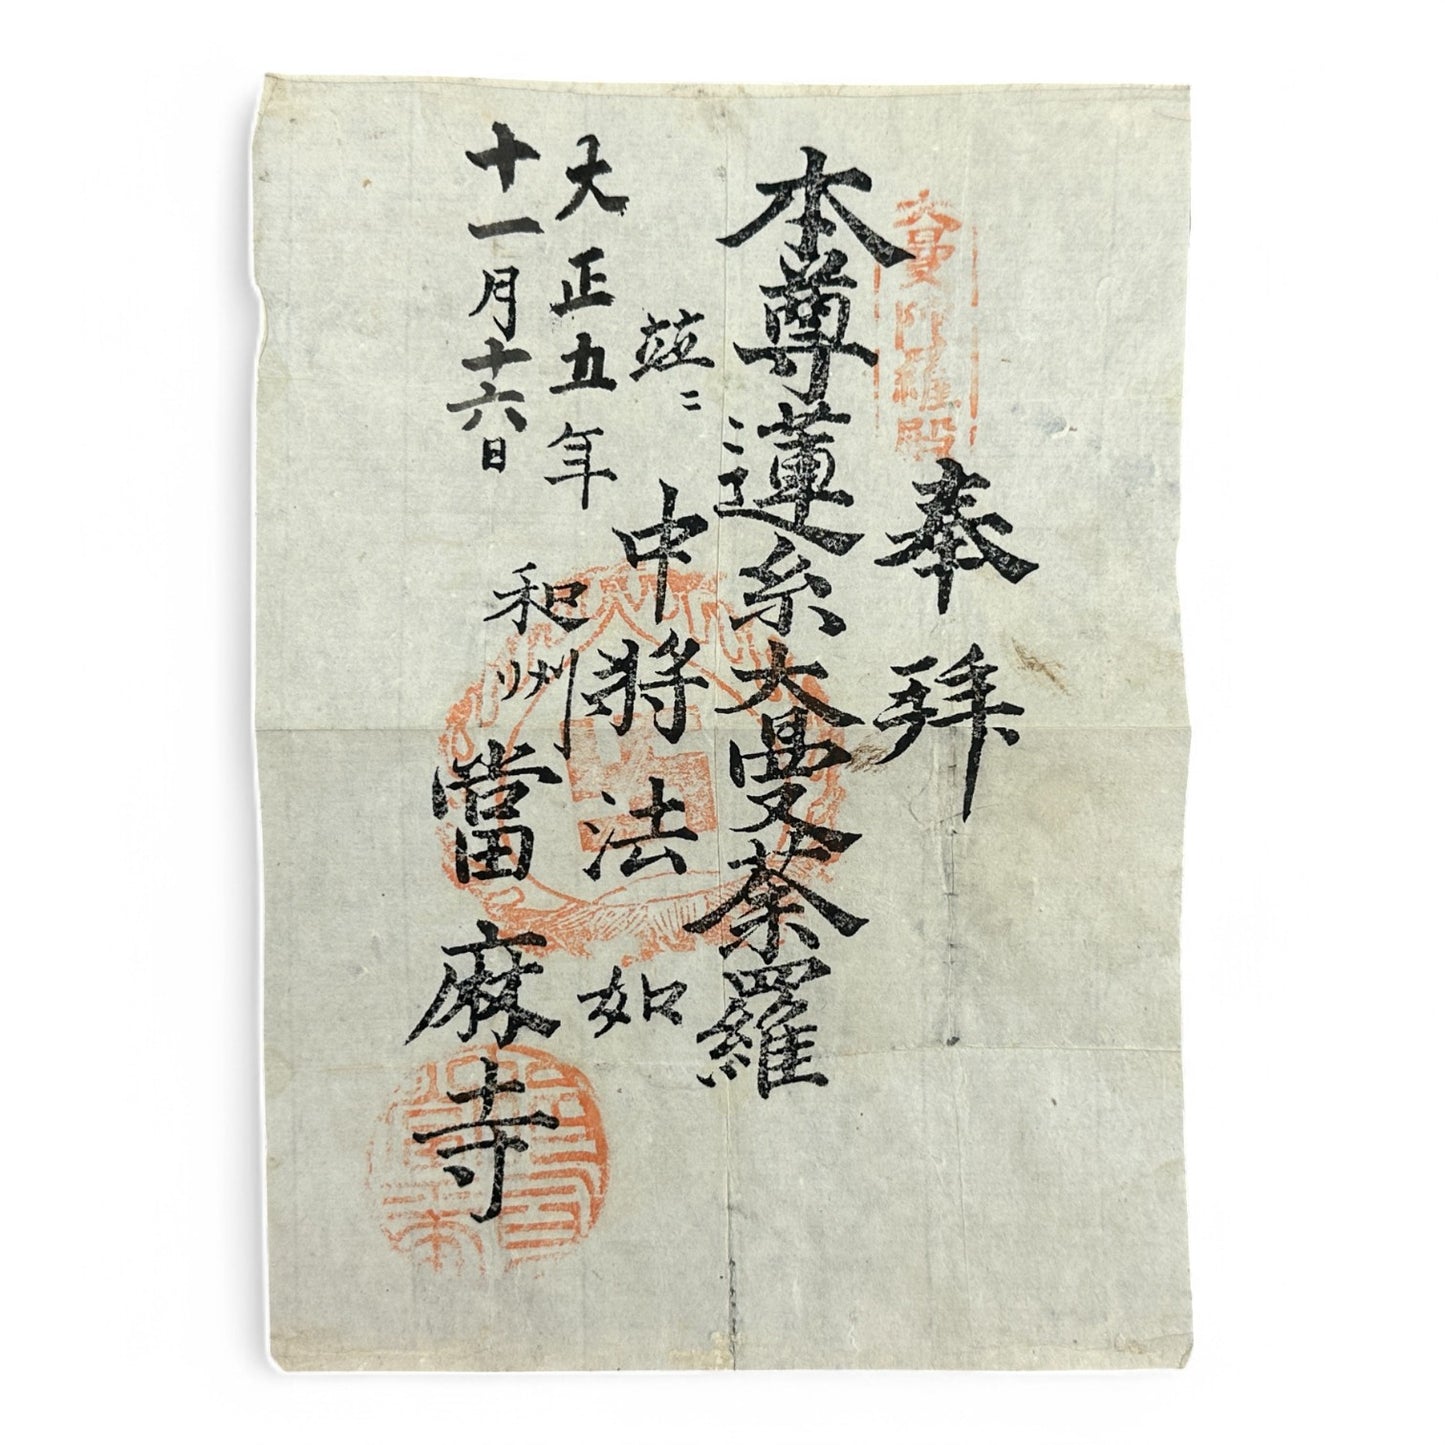 奉拜
本尊蓮糸大曼荼羅
竝ニ
中將法如
大正五年
十一月十六日
和州
當麻寺